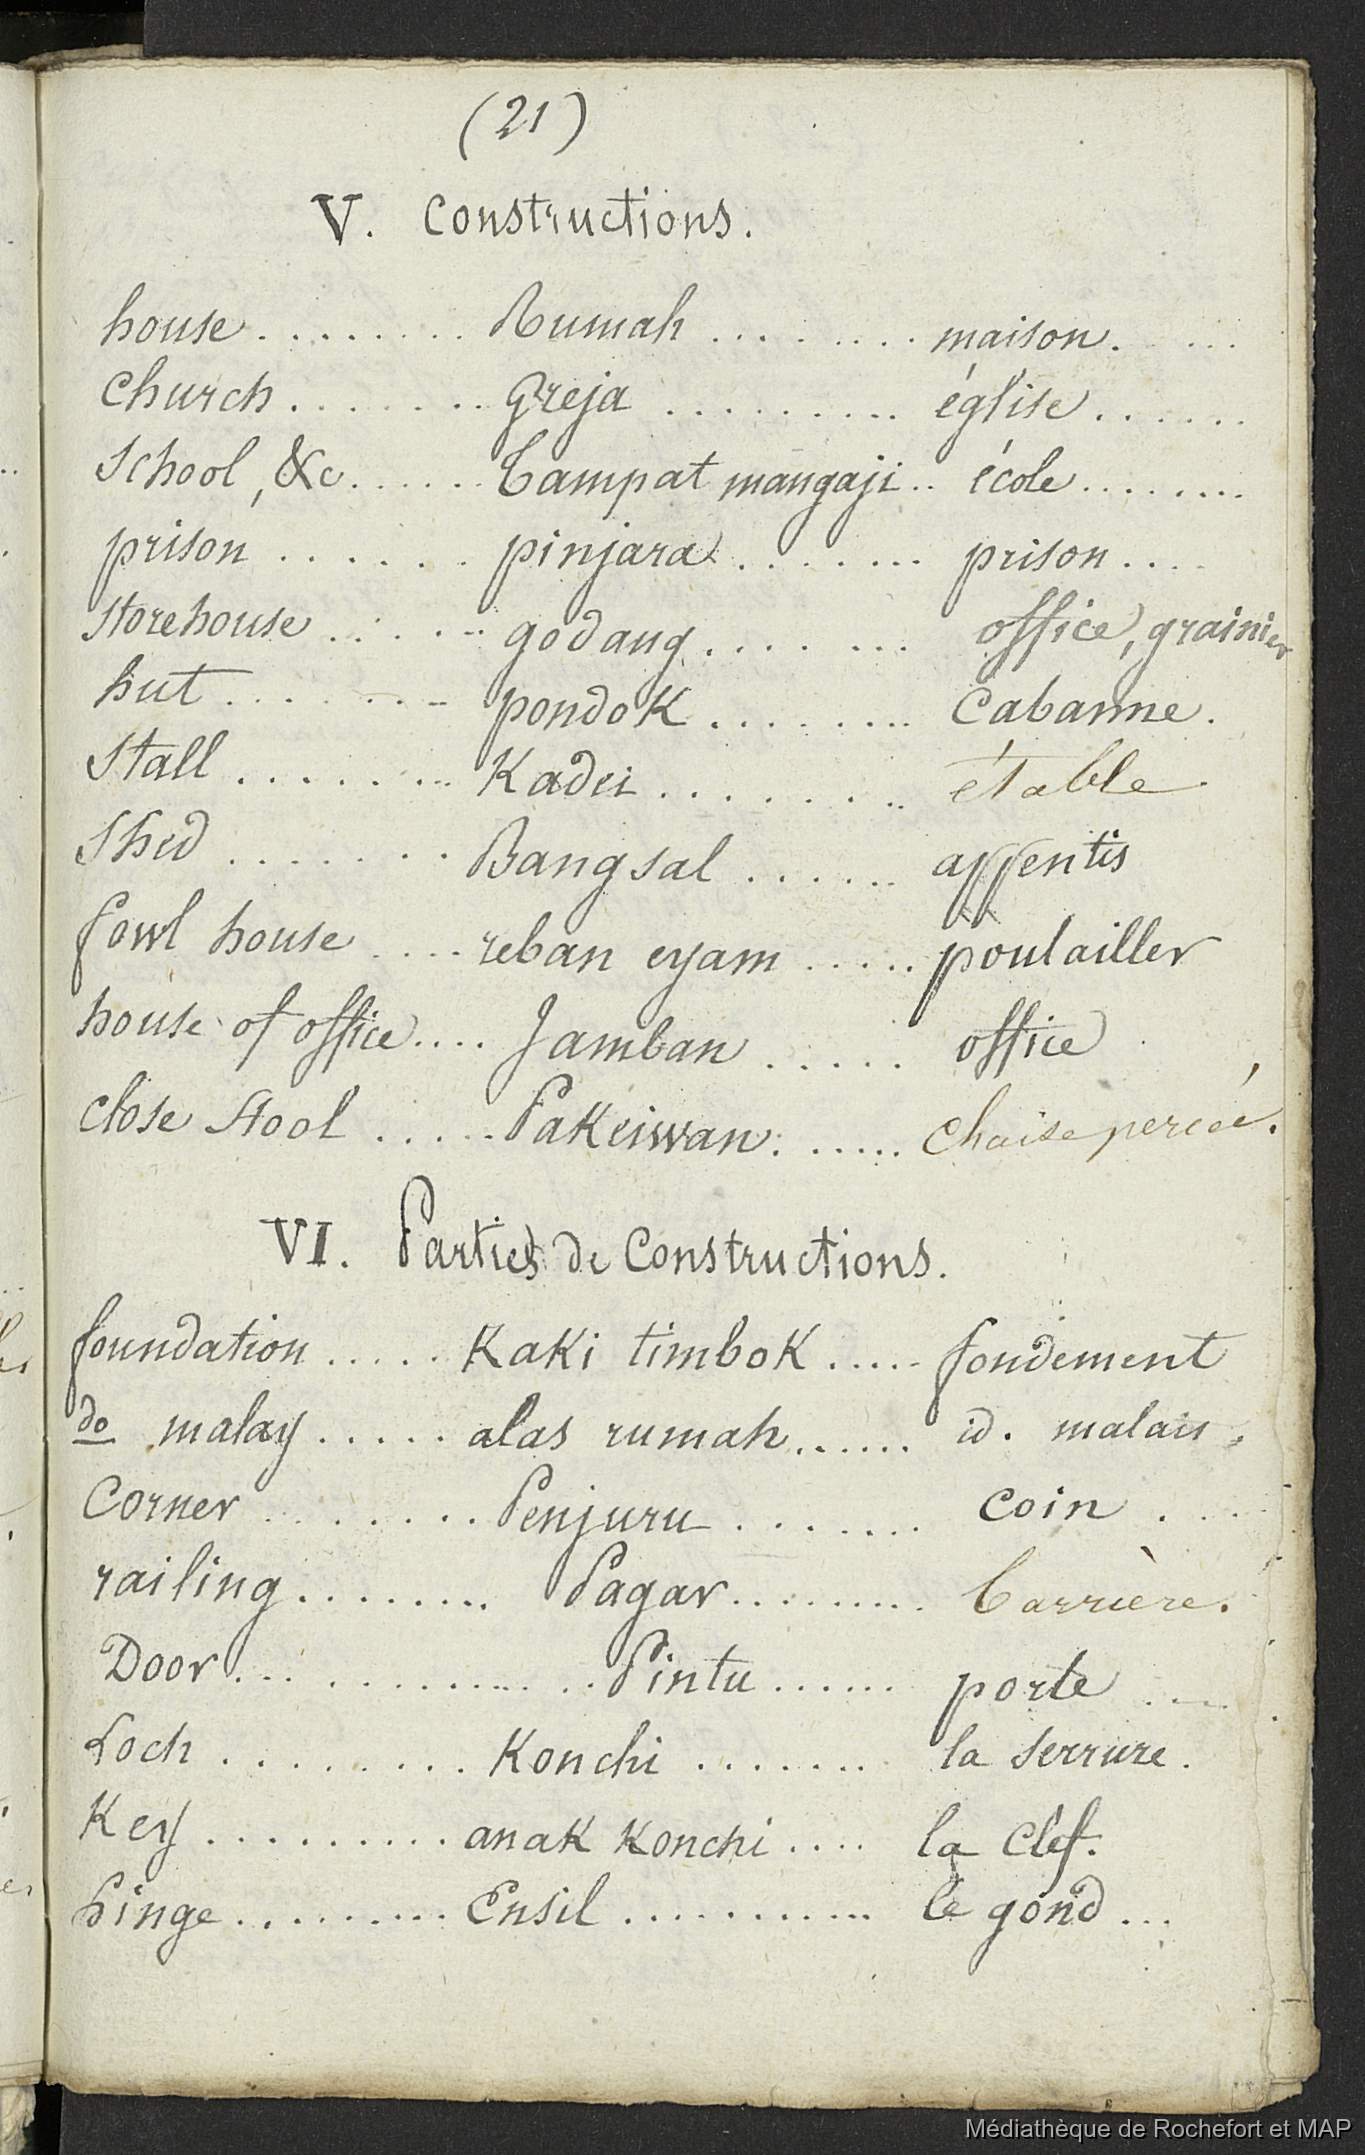 (21)
V. Constructions.
house ........ Rumah ........ maison. ...
Church ........ Greja ......... église ......
School, &c ...... Tampat mangaji .. école ........
prison ...... pinjara ....... prison ....
Storehouse ...... godang ....... office, grainier
hut ........ pondok ........ Cabanne.
Stall ....... Kadei ........ étable.
Shed ....... Bangsal ...... appentis
fowl house .... reban eyam ..... poulailler
house of office .... Jamban ..... office
close stool ..... Pakeiwan. ..... chaise percée.
VI. Parties de Constructions.
foundation ..... Kaki timbok ..... fondement
do malay ..... alas rumah ...... id. malais.
Corner ........ Penjuru ....... coin ....
railing ........ Pagar ......... barrière.
Door ............ Pintu ...... porte ....
Loch ......... Konchi ....... la serrure.
Key ......... anak Konchi .... la clef.
hinge ......... Ensil ........... le gond ...
Médiathèque de Rochefort et MAP